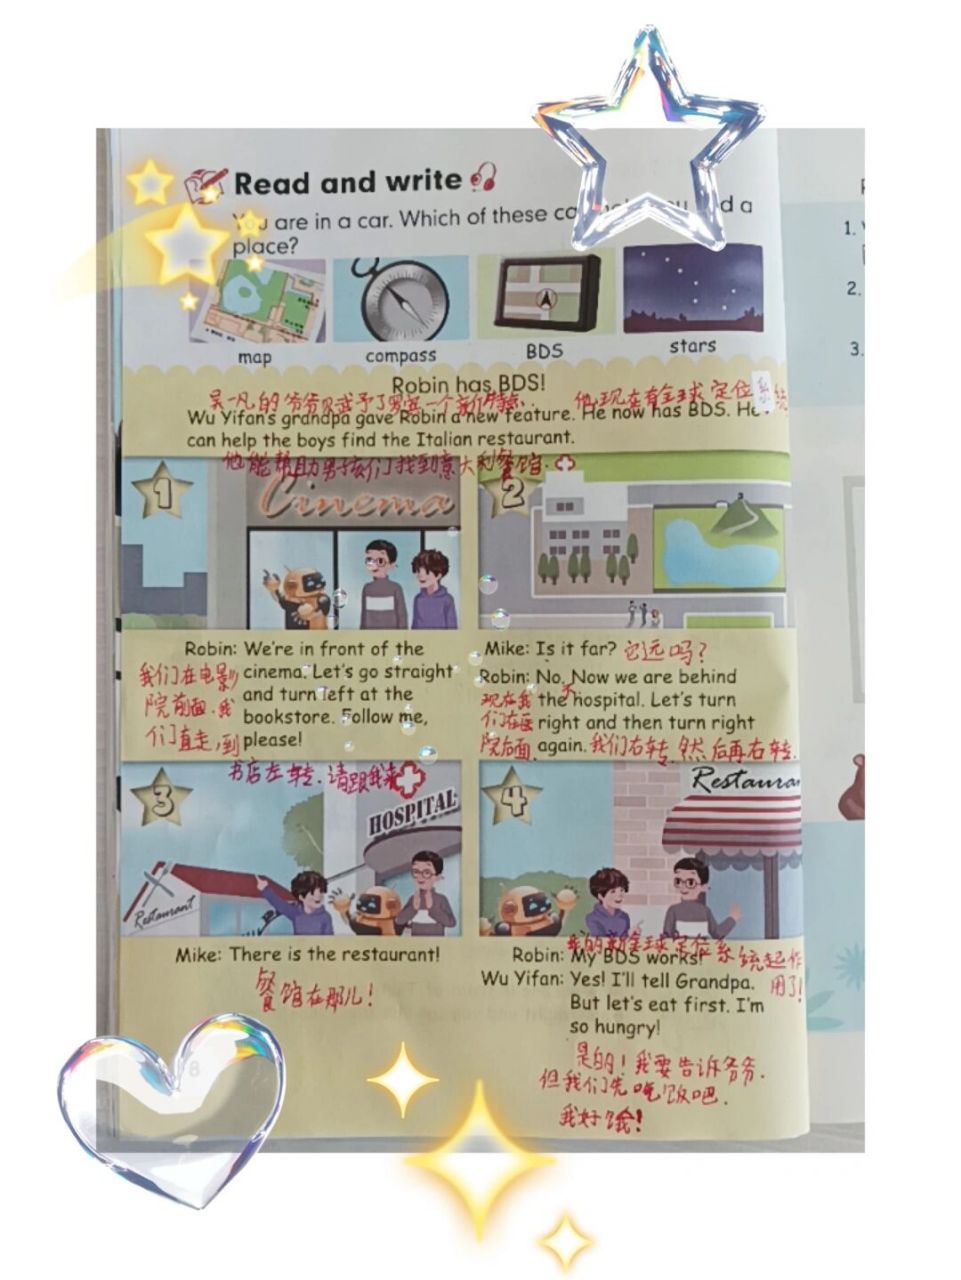 Read and write
You are in a car. Which of these ca you d a
place?
1.
2.
3.
map
compass
BDS
stars
Robin has BDS!
吴一凡的爷爷 予了罗宾一个新特点. 他现在有全球定位系统
Wu Yifan's grandpa gave Robin a new feature. He now has BDS. He
can help the boys find the Italian restaurant.
他能帮助男孩们找到意大利餐馆.
1
Cinema
2
Robin: We're in front of the
cinema. Let's go straight
and turn left at the
bookstore. Follow me,
please!
我们在电影
院前面.我
们直走,到
书店左转.请跟我来
Mike: Is it far? 它远吗?
Robin: No. Now we are behind
the hospital. Let's turn
right and then turn right
again.
不
现在我
们在医
院后面. 我们右转,然后再右转.
3
HOSPITAL
Restaurant
4
Restauran
Mike: There is the restaurant!
餐馆在那儿!
我的 全球定位系统起作用了!
Robin: My BDS works!
Wu Yifan: Yes! I'll tell Grandpa.
But let's eat first. I'm
so hungry!
是的!我要告诉爷爷.
但我们先吃饭吧.
我好饿!
8